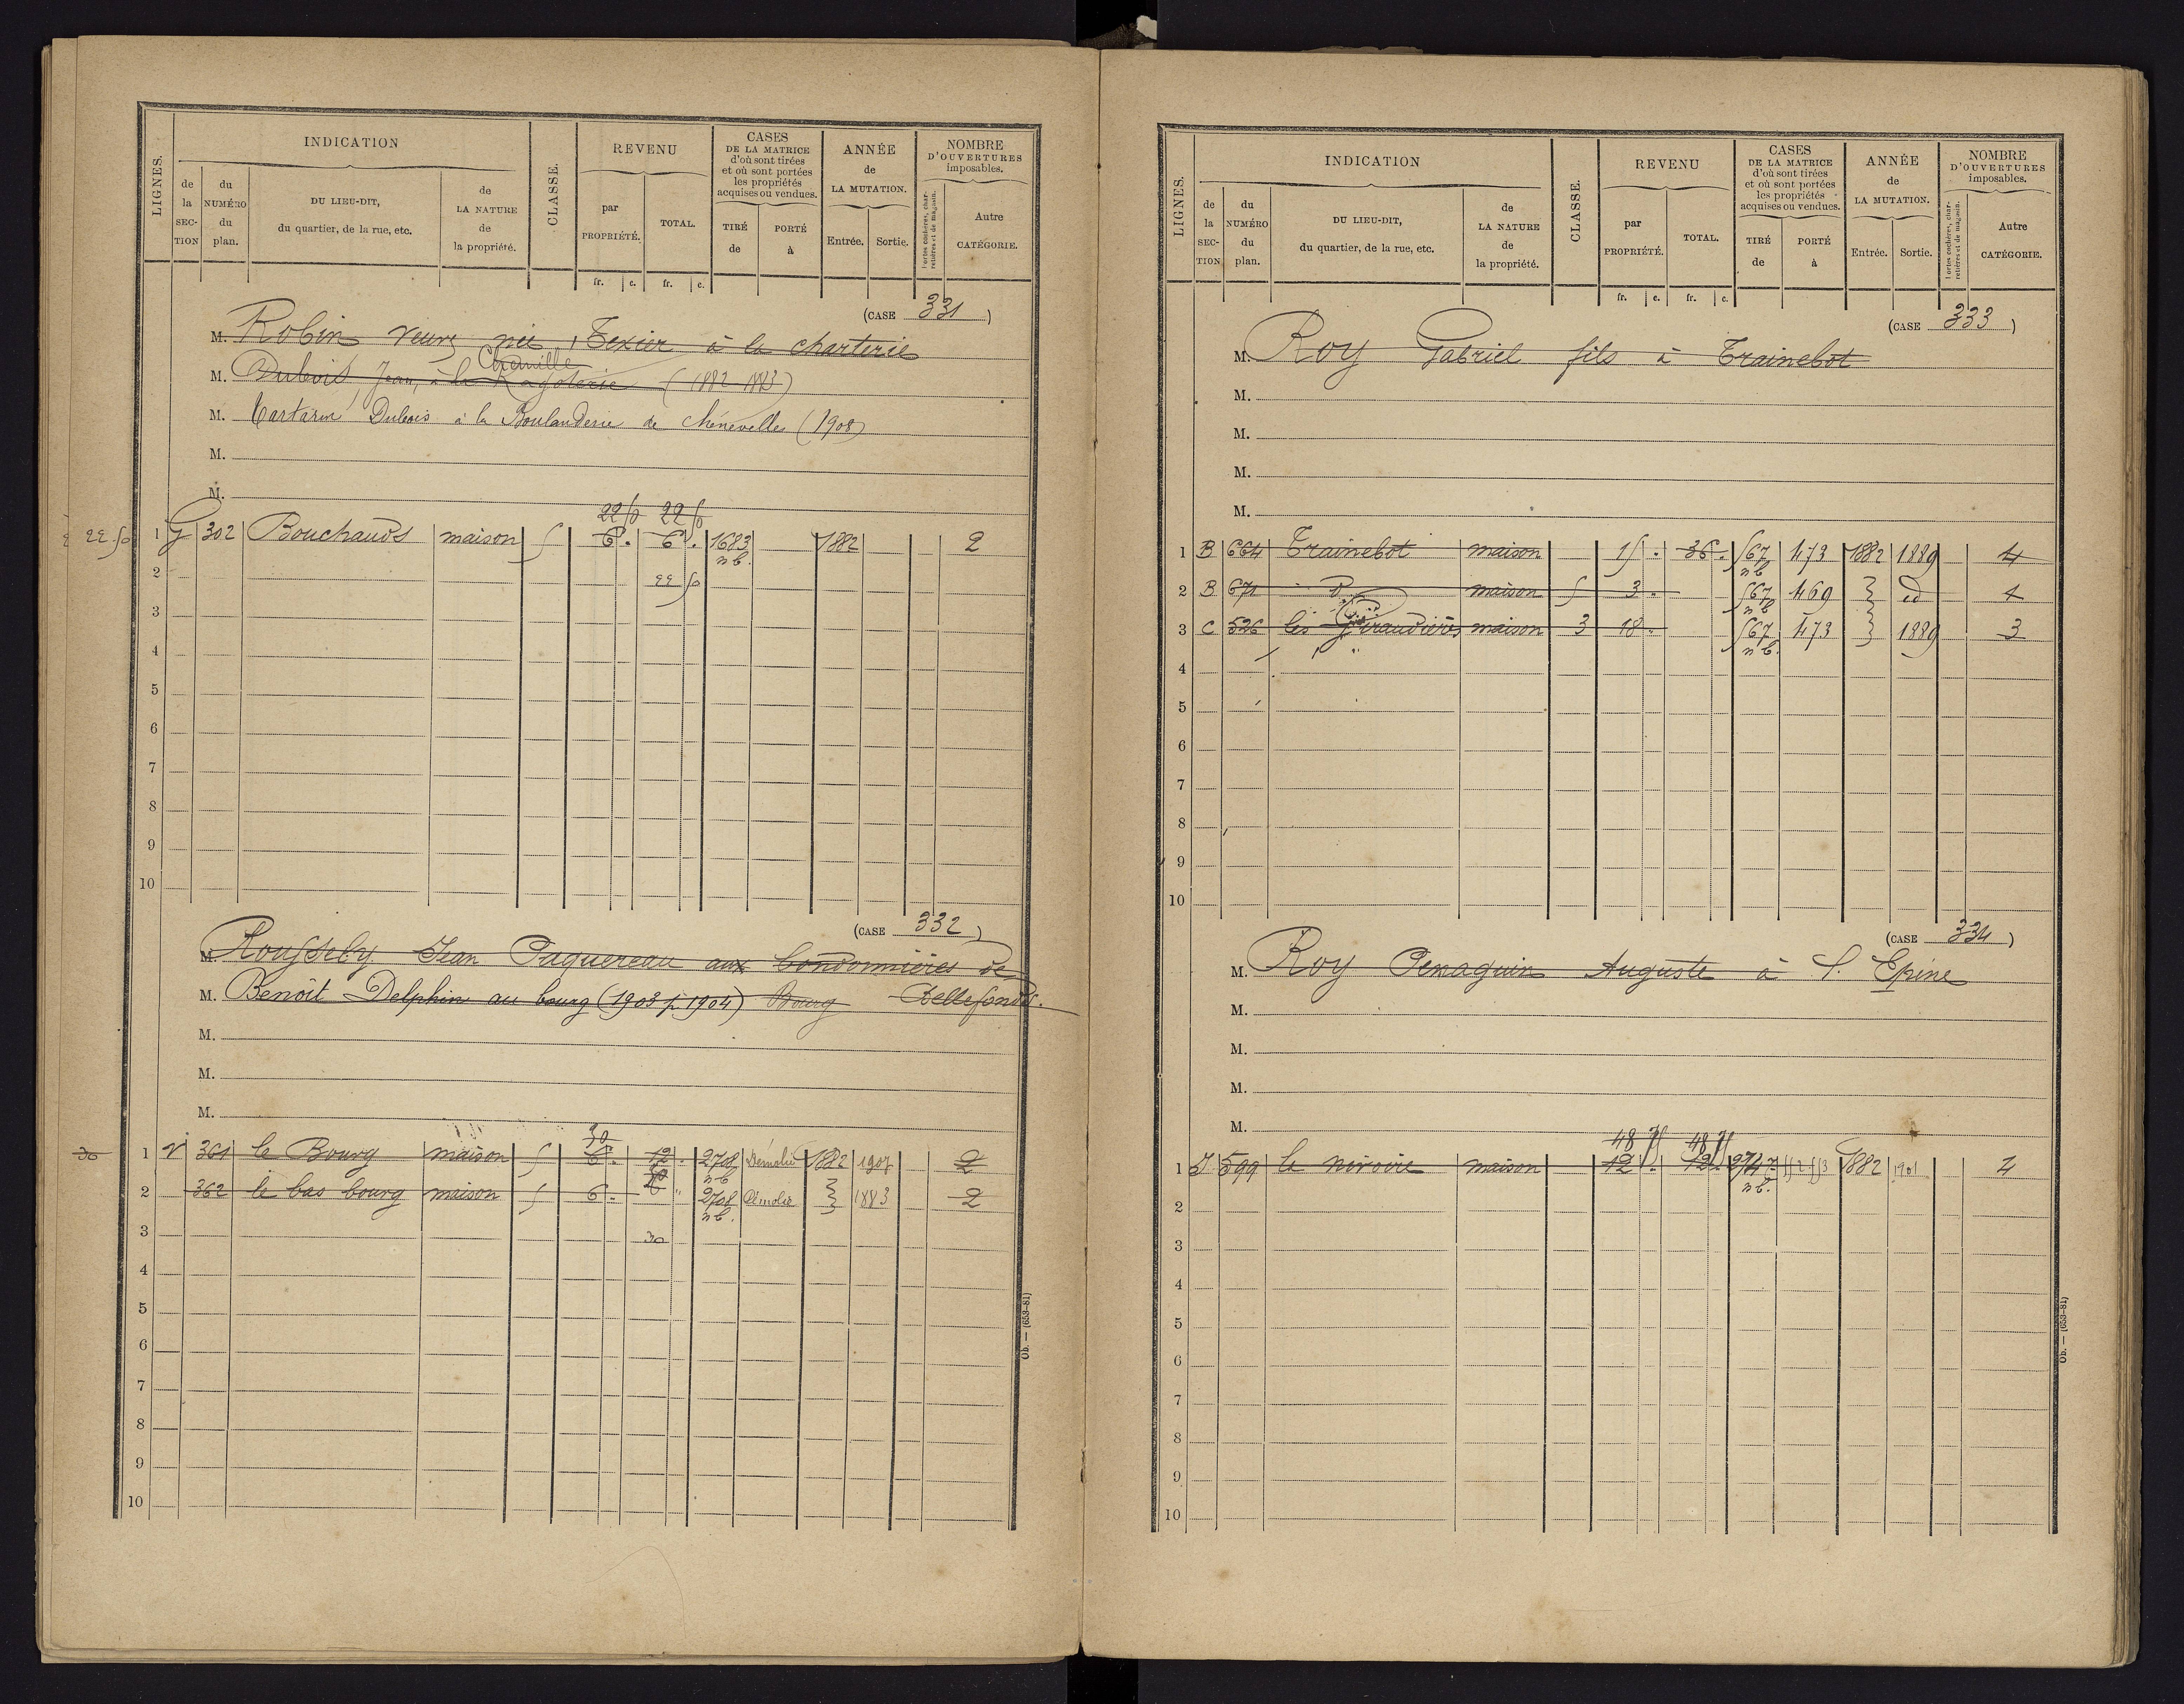 LIGNES. INDICATION CLASSE. REVENU CASES DE LA MATRICE d'où sont tirées et où sont portées les propriétés acquises ou vendues. ANNÉE de LA MUTATION. NOMBRE D'OUVERTURES imposables.
de la SECTION du NUMÉRO du plan. DU LIEU-DIT, du quartier, de la rue, etc. de LA NATURE de la propriété. par PROPRIÉTÉ. TOTAL. TIRÉ de PORTÉ à Entrée. Sortie. Portes cochères, charretières et de magasin. Autre CATÉGORIE.
fr. c. fr. c.
(CASE 331)
M. Robin veuve née Texier à la charterie
Chemille
M. Dubois Jean, à la Ragoterie (1882-1883)
M. Tartarin Dubois à la Boulanderie de chénevelles (1908)
M.
M.
22 50 22 50
22 50 1 G 302 Bouchauds maison 5 6 . 6 . 1683 nb. 1882 2
2 22 50
3
4
5
6
7
8
9
10
(CASE 332)
M. Rousseby Jean Paquereau aux Condonnieres de
M. Benoît Delphin au bourg (1903 p. 1904) Bourg Bellefonds.
M.
M.
M.
30
30 1 V 361 le Bourg maison 5 6 . 12 . 2708 nb Démolie 1882 1907 2
2 362 le bas bourg maison 5 6 . 6 " 2708 nb. Démolie 1883 2
3 30
4
5
6
7
8
9
10
Ob. — (653-81)
LIGNES. INDICATION CLASSE. REVENU CASES DE LA MATRICE d'où sont tirées et où sont portées les propriétés acquises ou vendues. ANNÉE de LA MUTATION. NOMBRE D'OUVERTURES imposables.
de la SECTION du NUMÉRO du plan. DU LIEU-DIT, du quartier, de la rue, etc. de LA NATURE de la propriété. par PROPRIÉTÉ. TOTAL. TIRÉ de PORTÉ à Entrée. Sortie. Portes cochères, charretières et de magasin. Autre CATÉGORIE.
fr. c. fr. c.
(CASE 333)
M. Roy Gabriel fils à Trainebot
M.
M.
M.
M.
1 B 664 Trainebot maison 15 . 36 . 567 nb 473 1882 1889 4
2 B 671 d° maison 5 3 . 567 nb 469 id 4
3 C 526 les Giraudières maison 3 18 . 567 nb. 473 1889 3
4
5
6
7
8
9
10
(CASE 334)
M. Roy Penaguin Auguste à l'Epine
M.
M.
M.
M.
48 75 48 75
1 J 599 le miroire maison 12 . 12 . nb. 1882 1901 4
2
3
4
5
6
7
8
9
10
Ob. — (653-81)